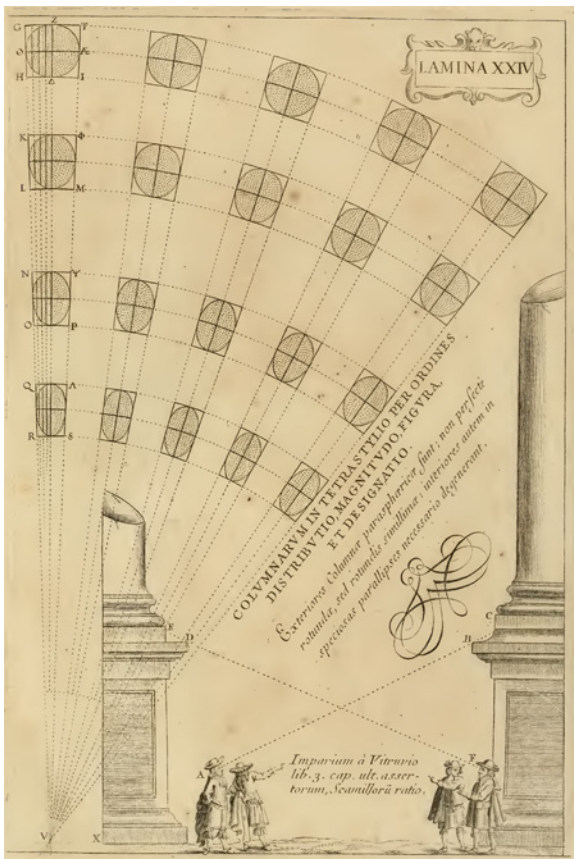 LAMINA XXIV
Z
G T
O Æ
H Δ I
K Φ
L M
N Y
O P
Q Λ
R S
COLVMNARVM IN TETRASTYLIO PER ORDINES
DISTRIBVTIO, MAGNITVDO, FIGVRA,
ET DESIGNATIO.
Exteriores Columnæ parasphæricæ sunt; non perfectè
rotundæ, sed rotundis simillimæ: interiores autem in
speciosas parallipses necessario degenerant.
E
D
C
B
A
F
Imparium à Vitruvio
lib. 3. cap. ult. asser-
torum, Scamillorū ratio.
V X